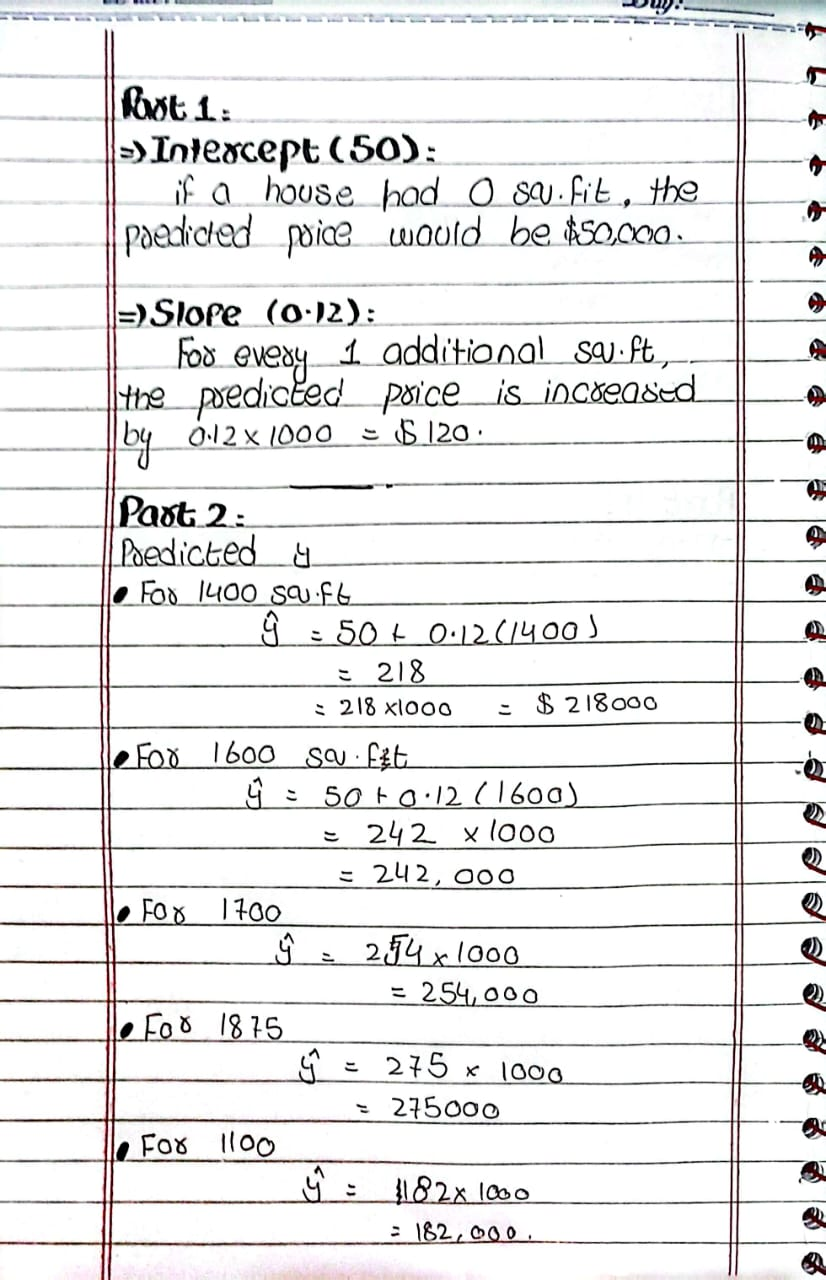 Day:
Part 1:
⇒ Intercept (50):
if a house had 0 sq.fit, the
predicted price would be $50,000.
⇒ Slope (0.12):
For every 1 additional sq.ft,
the predicted price is increased
by 0.12 x 1000 = $ 120.
Part 2:
Predicted y
• For 1400 sq.ft
ŷ = 50 + 0.12 (1400)
= 218
= 218 x1000 = $ 218000
• For 1600 sq.feet
ŷ = 50 + 0.12 (1600)
= 242 x 1000
= 242,000
• For 1700
ŷ = 254 x 1000
= 254,000
• For 1875
ŷ = 275 x 1000
= 275000
• For 1100
ŷ = 182 x 1000
= 182,000.